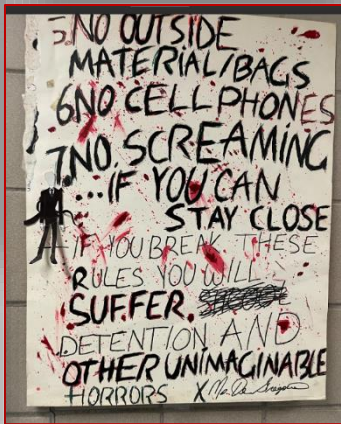 5. NO OUTSIDE
MATERIAL/BAGS
6 NO CELL PHONES
7 NO SCREAMING
...IF YOU CAN
STAY CLOSE
- IF YOU BREAK THESE
RULES YOU WILL
SUFFER.
DETENTION AND
OTHER UNIMAGINABLE
HORRORS X